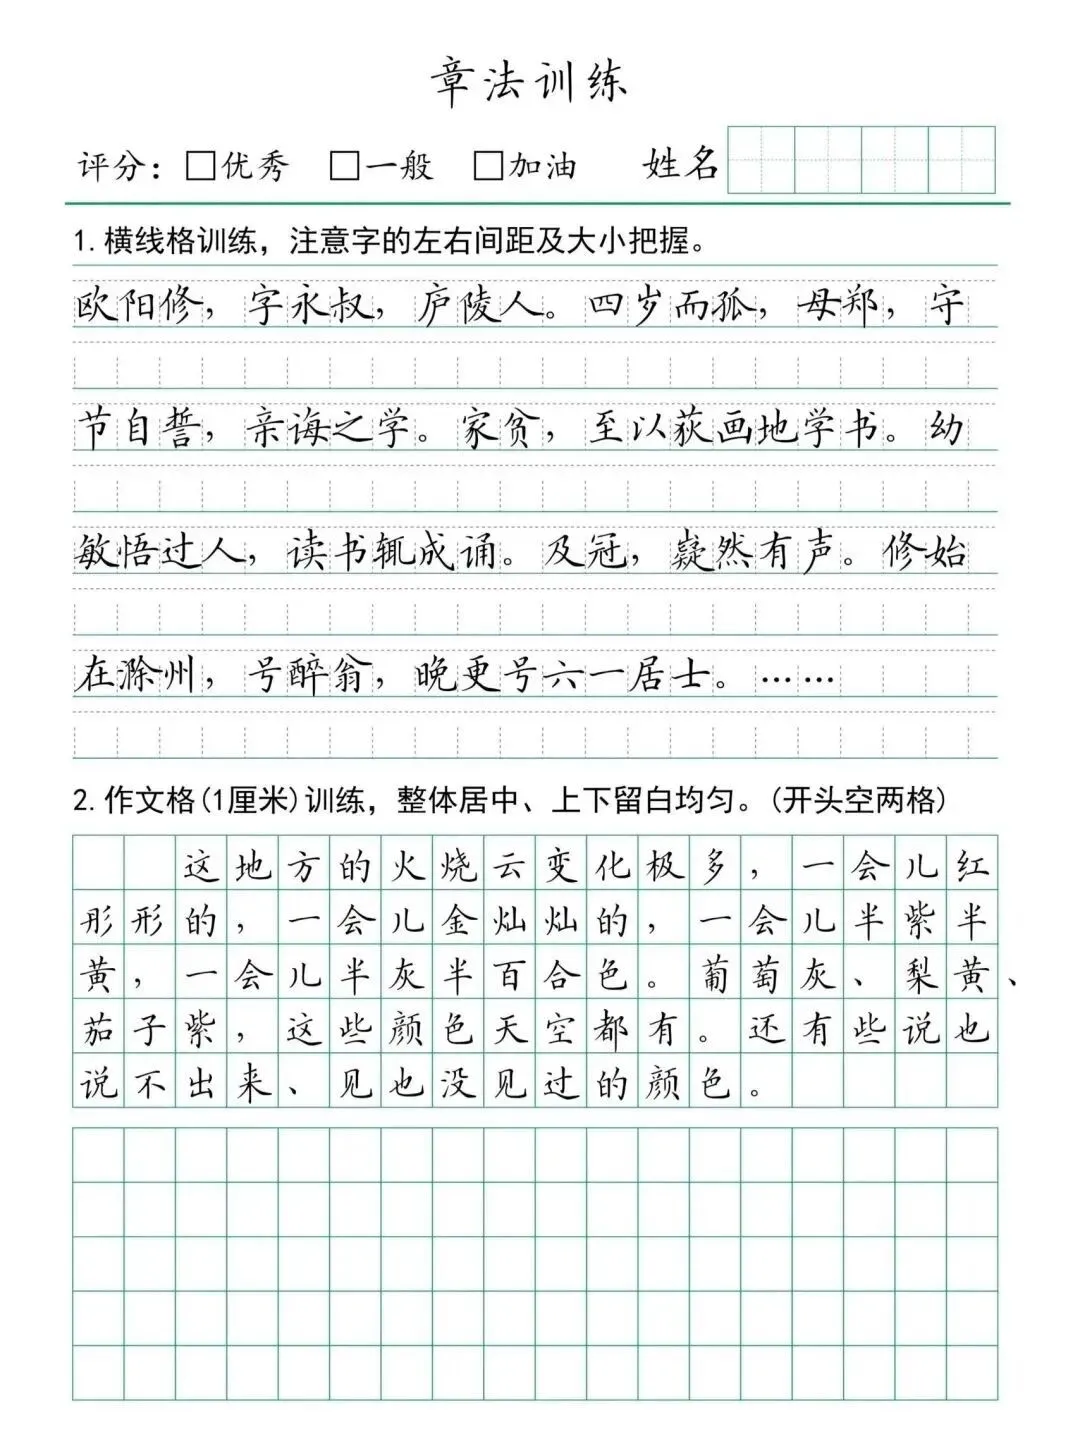 章法训练
评分：□优秀 □一般 □加油 姓名
1.横线格训练，注意字的左右间距及大小把握。
欧阳修，字永叔，庐陵人。四岁而孤，母郑，守
节自誓，亲诲之学。家贫，至以荻画地学书。幼
敏悟过人，读书辄成诵。及冠，嶷然有声。修始
在滁州，号醉翁，晚更号六一居士。……
2.作文格(1厘米)训练，整体居中、上下留白均匀。(开头空两格)
这地方的火烧云变化极多，一会儿红
彤彤的，一会儿金灿灿的，一会儿半紫半
黄，一会儿半灰半百合色。葡萄灰、梨黄、
茄子紫，这些颜色天空都有。还有些说也
说不出来、见也没见过的颜色。